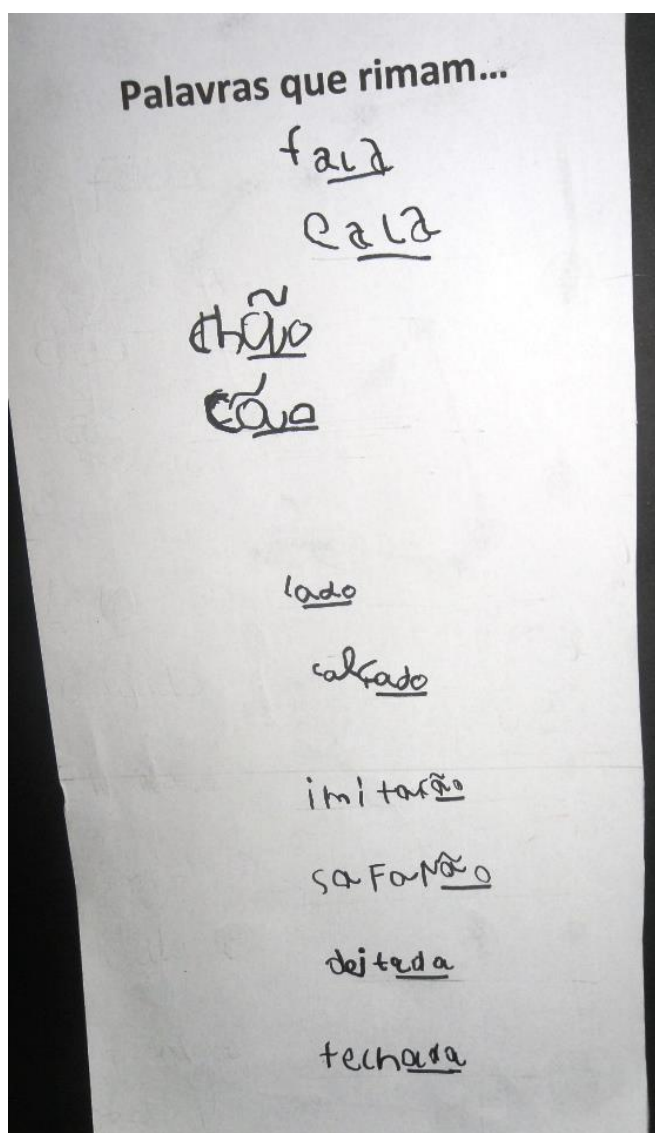 Palavras que rimam...
fala
cala
chão
cão
lado
calçado
imitação
safanão
deitada
fechada